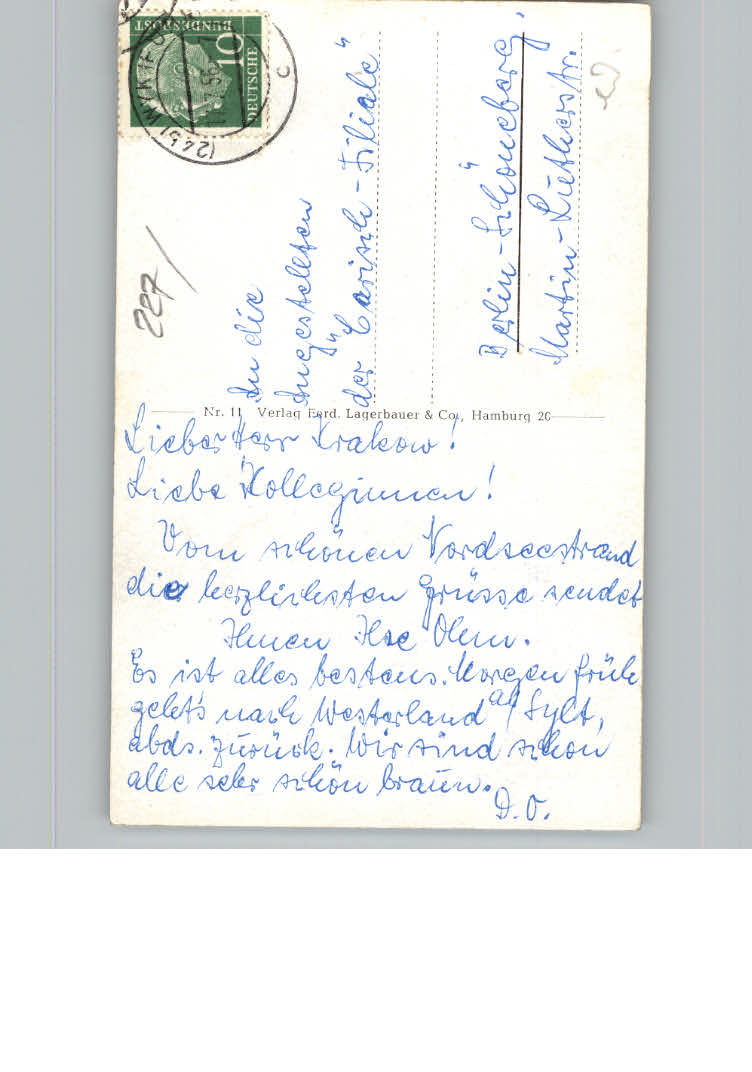 DEUTSCHE
BUNDESPOST
10
(24b) WYK
c
227/
An die
Angestellten
der "Carisch-Filiale"
Berlin-Schöneberg,
Martin-Lutherstr.
Nr. 11 Verlag Ferd. Lagerbauer & Co., Hamburg 26
Lieber Herr Krakow!
Liebe Kolleginnen!
Vom schönen Nordseestrand
die herzlichsten Grüsse sendet
Ihnen Ilse Ohm.
Es ist alles bestens. Morgen früh
geht's nach Westerland a/ Sylt,
abds. zurück. Wir sind schon
alle sehr schön braun.
D. O.